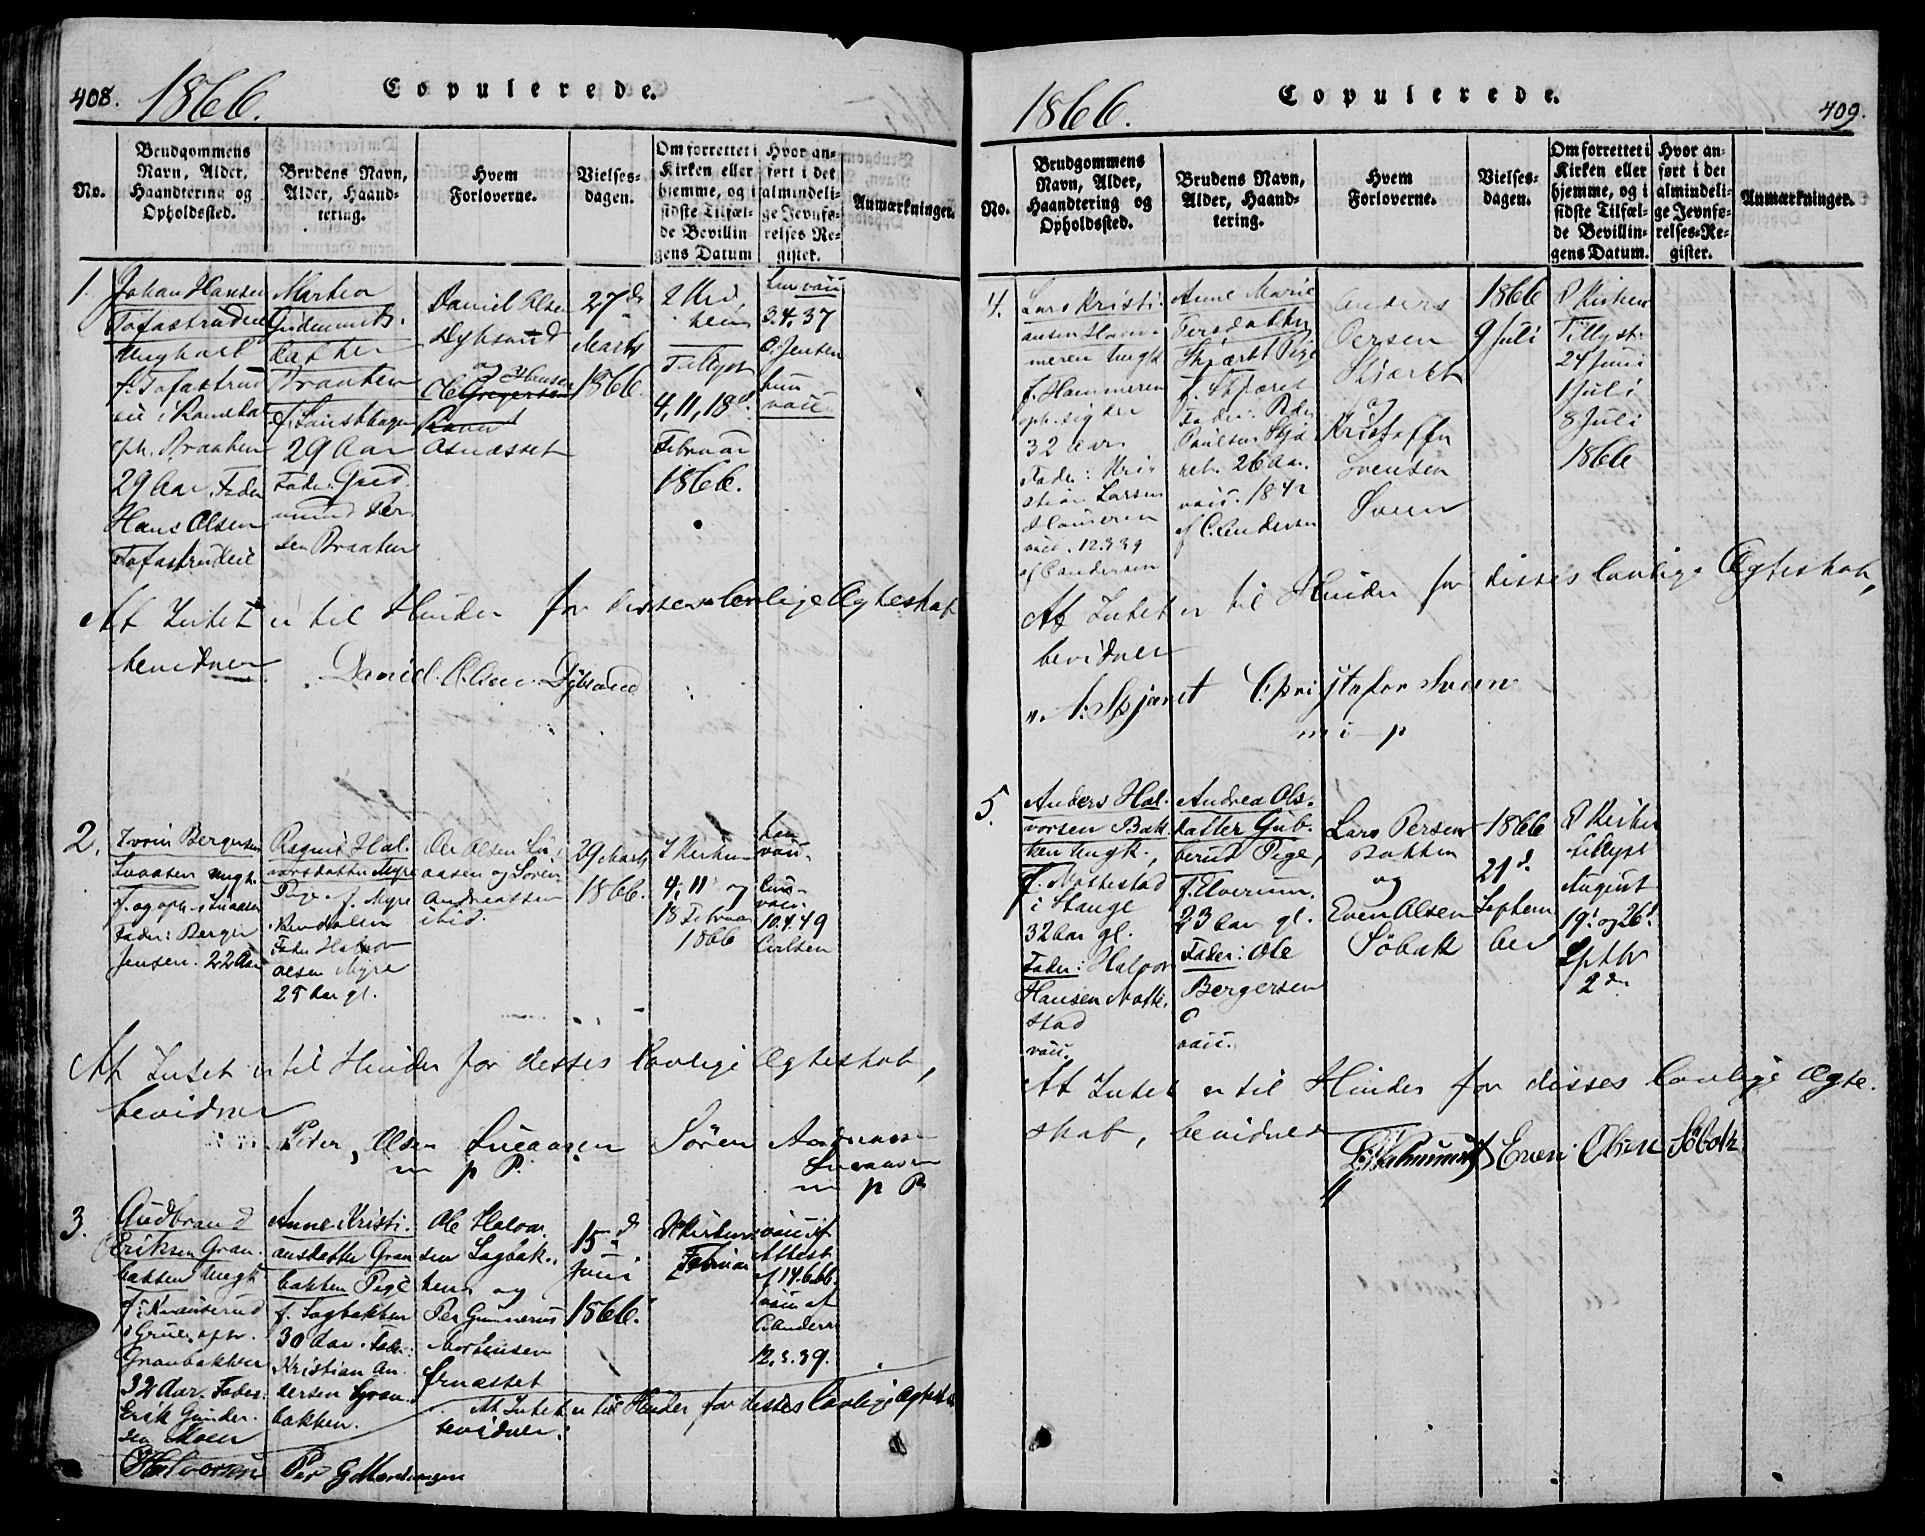 408. 1866. Copulerede.
No.
Brudgommens
Navn, Alder,
Haandtering og
Opholdssted.
Brudens Navn,
Alder, Haand-
tering.
Hvem
Forloverne.
Vielses-
dagen.
Om forrettet i
Kirken eller
hjemme, og i
sidste Tilfæl-
de Bevillin
gens Datum
Hvor an-
ført i det
almindeli-
ge Jevnfø-
relses-Re-
gister.
Anmærkninger.
1.
Johan Hansen
Tofastrudeie
Ungkarl
f. Tofastrud
eie i Romedal
oph. Braaten
29 Aar. Fader
Hans Olsen
Tofastrudeie
Marthea
Gudmunds-
datter
Braaten
29 Aar
Fader: Gud-
mund
sen Braaten
Daniel Olsen
Dybsand
og
Asnæsset
27de
Marts
1866.
I
Tillyst
4, 11, 18d
Februar
1866.
3.4.37
O. Jensen
hun
vacc.
At Intet er til Hinder for disses lovlige Ægteskab
bevidner
Daniel Olsen Dybsand
2.
Bergersen
ungk.
f. og oph.
Fader: Berger
Jensen. 22 Aar
Ragnil Hal-
vorsdatter Myre
Pige. f. Myre
Fader Halvor
Olsen Myre
25 Aar gl.
Olsen
aasen og Søren
Andreassen
ibid.
29 Marts
1866.
I Kirken
4, 11 og
18 Februar
1866
han
vacc.
hun
vacc.
10.4.49
At Intet er til Hinder for disses lovlige Ægteskab,
bevidner
Peder Olsen Søren Andreassen
m p P.
m p P.
3.
Gudbrand
Eriksen Gran-
bakken Ungk
i Grue, oph.
Granbakken
32 Aar. Fader
Erik Gunder-
sen Moen
Anne Kristi-
ansdatter Gran
bakken Pige
f. Sagbakken
30 Aar. Fader:
Kristian An-
dersen Gran-
bakken.
Ole Halvor-
sen Sagbak-
ken og
Per Gunnerus
Mortensen
15d
Juni
1866.
I Kirken
Februar
vacc. if
Attest
af 14.6.66.
vacc. af
C. Anderse
12.3.39.
At Intet er til Hinder for disses lovlige Ægteskab
bevidner:
O Halvorsen Per G Mortensen
1866. Copulerede. 409.
No.
Brudgommens
Navn, Alder,
Haandtering og
Opholdssted.
Brudens Navn,
Alder, Haand-
tering.
Hvem
Forloverne.
Vielses-
dagen.
Om forrettet i
Kirken eller
hjemme, og i
sidste Tilfæl-
de Bevillin-
gens Datum.
Hvor an-
ført i det
almindeli-
ge Jevnfø-
relses-Re-
gister.
Anmærkninger.
4.
Lars Kristi-
ansen Ham-
meren Ungk
f. Hammeren
oph. sig der
32 Aar
Fader: Kri-
stian Larsen
Hammeren
vacc. 12.3.39
af C. Andersen
Anne Marie
Persdatter
Skjæret Pige
f. Skjæret
Fader: Peder
Paulsen Skjæ-
ret. 26 Aar.
vacc. 1842
af C. Andersen
Anders
Persen
Skjæret
og
Kristoffer
Svensen
Sveen
1866
9 Juli
I Kirken
Tillyst:
24 Juni
1 Juli
8 Juli
1866
At Intet er til Hinder for disses lovlige Ægteskab,
bevidner
A: Skjæret Christofer Sveen
m p
5.
Anders Hal-
vorsen Bak
ken Ungk.,
f. Mostestad
i Stange
32 Aar gl.
Fader: Halvor
Hansen Moste-
stad
vacc.
Andrea Ols-
datter Gub-
berud Pige,
f. Elverum.
23 Aar gl.
Fader: Ole
Bergersen
vacc.
Lars Persen
Bakken
og
Even Olsen
Søbak
1866
21d
Septem
ber
I Kirken
tillyst
August
19d og 26d
Septbr
2d
At Intet er til Hinder for disses lovlige Ægte-
skab, bevidner
Even Olsen Søbak